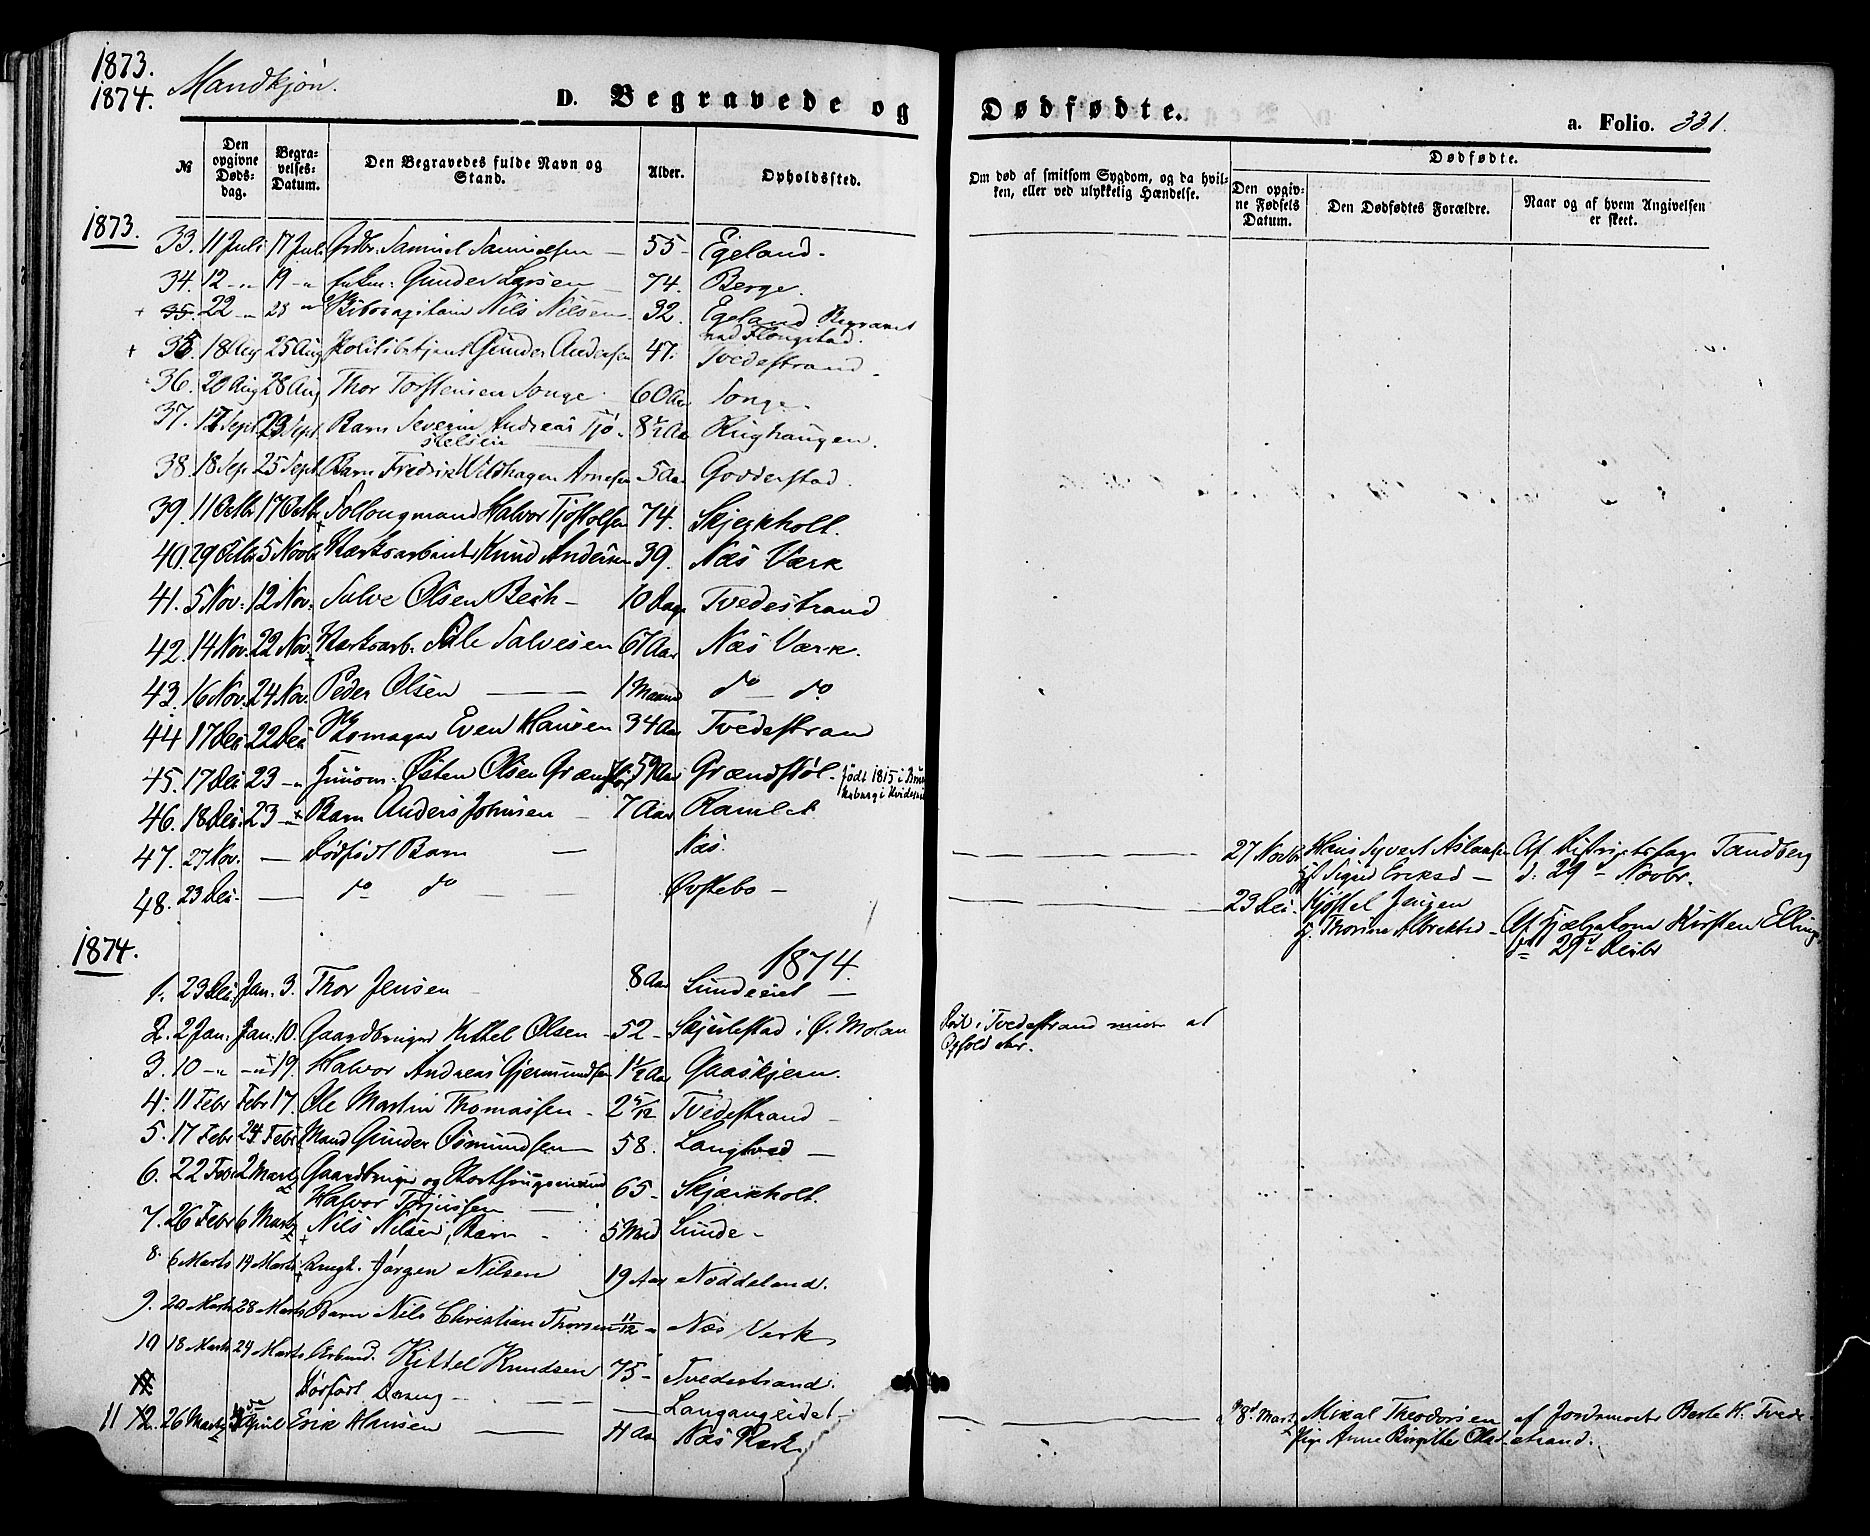 1873.
1874. Mandkjøn.
D. Begravede og Dødfødte. a. Folio. 331.
№ Den opgivne Døds-dag. Begra-velses-Datum. Den Begravedes fulde Navn og Stand. Alder. Opholdssted. Om død af smitsom Sygdom, og da hvil-ken, eller ved ulykkelig Hændelse. Dødfødte. Den opgiv-ne Fødsels Datum. Den Dødfødtes Forældre. Naar og af hvem Angivelsen er skeet.
1873.
33. 11 Juli 17 Juli Gdbr. Samuel Samuelsen 55 Egeland.
34. 12 -"- 19 -"- Gunder Larsen 74. Berge.
35. 22 -"- 28 -"- Nils Nilsen 32. Egeland Begravet
ved Flougstad.
35. 18 Aug 25 Aug Politibetjent Gunder Andersen 47. Tvedestrand.
36. 20 Aug 28 Aug Thor Torstensen Songe 60 Aar Songe.
37. 17 Sept 23 Sept Barn Severin Andreas Tjø-
stelsen 8½ Aar Rughaugen.
38. 18 Sep. 25 Sept Barn Fredrik Wildhagen Arnesen 5 Aar Godderstad.
39. 11 Octbr 17 Octbr Halvor Tjøstolsen 74. Skjerkholt.
40. 29 Octbr 5 Novbr Værksarbeider Knud Andersen 39. Næs Værk
41. 5 Nov. 12 Nov. Salve Olsen Bech 10 Dage Tvedestrand
42. 14 Nov. 22 Nov. Værksarb. Ole Salvesen 67 Aar Næs Værk.
43. 16 Nov. 24 Nov. Peder Olsen 1 Maaned do do
44 17 Dec 22 Dec Skomager Even Hansen 34 Aar Tvedestrand
45. 17 Dec 23 -"- Huusm. Østen Olsen Grændstøl 59 Aar Grændstøl. født 1815 i
i Kvidesei
46. 18 Dec. 23 -"- Barn Anders Johnsen 7 Aar Ramlet
47. 27 Nov. — Dødfødt Barn — Næs. 27 Novbr Hans Syvert Aslaksen Af Distriktslæge Tandberg
Sigrid Eriksd d: 29 Novbr.
48. 23 Dec. — do do — Øvstebø — 23 Dec. Kjøstel Jensen
Thorine Albrektsd Af Hjælpekone Kirsten Elling
29 Decbr
1874. 1874.
1. 23 Dec. Jan. 3. Thor Jensen 8 Aar Lundeeiet —
2. 2 Jan. Jan. 10. Gaardbruger Kittel Olsen 52 Skjulestad i Ø. Moland Død i Tvedestrand under et
Ophold der.
3. 10 -"- -"- 19. Halvor Andreas Gjermundsen 1½ Aar Gaaskjern.
4. 11 Febr Febr 17. Ole Martin Thomassen 2 5/12 Tvedestrand
5. 17 Febr 24 Febr Mand Gunder Osmundsen 58. Langtved
6. 22 Febr 2 Marts Gaardbruger og Storthingsmand
Halvor Torjussen 65 Skjærkholt.
7. 26 Febr 6 Marts Nils Nilsen, Barn 5 Mnd Lunde
8. 6 Marts 14 Marts Ungk. Jørgen Nilsen 19 Aar Nøddeland.
9. 20 Marts 28 Marts Barn Nils Christian Thorsen 11/12 Næs Verk
10 18 Marts 24 Marts Arbmd. Kittel Knudsen 75 Tvedestrand.
Dødfødt Dreng — Langangeidet 8 Marts Mikal Theodorsen af Jordmoder Berte H. Tvede-
Pige Anne Birgitte Olsd. strand.
11 12. 26 Marts April Erik Hansen 11 Aar Næs Verk